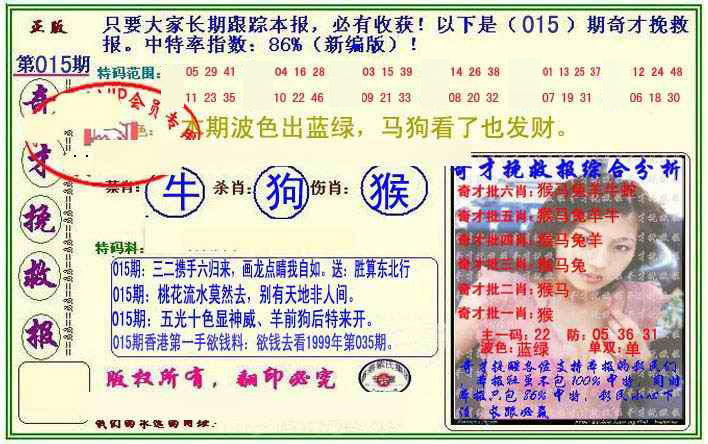 正版
只要大家长期跟踪本报，必有收获！以下是（015）期奇才挽救
报。中特率指数：86%（新编版）！
第015期
特码范围：
05 29 41 04 16 28 03 15 39 14 26 38 01 13 25 37 12 24 48
11 23 35 10 22 46 09 21 33 08 20 32 07 19 31 06 18 30
VIP会员专
色：本期波色出蓝绿，马狗看了也发财。
奇才挽救报
禁肖：牛 杀肖：狗 伤肖：猴
特码料：
015期：三二携手六归来，画龙点睛我自如。送：胜算东北行
015期：桃花流水莫然去，别有天地非人间。
015期：五光十色显神威、羊前狗后特来开。
015期香港第一手欲钱料：欲钱去看1999年第035期。
版权所有，翻印必究
我们的永远的网址：
奇才挽救报综合分析
奇才批六肖：猴马兔羊牛蛇
奇才批五肖：猴马兔羊牛
奇才批四肖：猴马兔羊
奇才批三肖：猴马兔
奇才批二肖：猴马
奇才批一肖：猴
主一码：22 防：05 36 31
波色：蓝绿 单双：单
奇才提醒各位支持本报的彩民们
本报虽不包100%中特，同时
本报只包86%中特，彩民小心下
注，长跟必赢